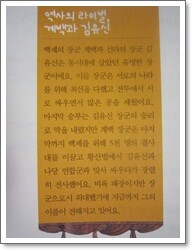 역사의 라이벌,
계백과 김유신
백제의 장군 계백과 신라의 장군 김
유신은 동시대에 살았던 유명한 장
군이에요. 이들 장군은 서로의 나라
를 위해 최선을 다했고 전투에서 서
로 싸우면서 많은 공을 세웠어요.
마지막 승부는 김유신 장군의 승리
로 막을 내렸지만 계백 장군은 마지
막까지 백제를 위해 5천 명의 결사
대를 이끌고 황산벌에서 김유신과
나당 연합군과 맞서 싸우다가 장렬
히 전사했어요. 비록 패장이지만 장
군으로서 위대했기에 지금까지 그의
이름이 전해지고 있어요.